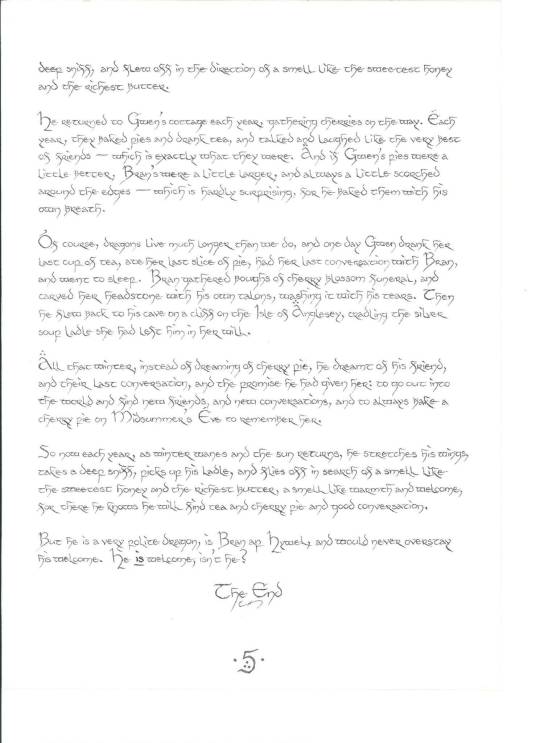 deep sniff, and flew off in the direction of a smell like the sweetest honey
and the richest butter.
He returned to Gwen's cottage each year, gathering cherries on the way. Each
year, they baked pies and drank tea, and talked and laughed like the very best
of friends — which is exactly what they were. And if Gwen's pies were a
little better, Bran's were a little larger, and always a little scorched
around the edges — which is hardly surprising, for he baked them with his
own breath.
Of course, dragons live much longer than we do, and one day Gwen drank her
last cup of tea, ate her last slice of pie, had her last conversation with Bran,
and went to sleep. Bran gathered boughs of cherry blossom funeral, and
carved her headstone with his own talons, washing it with his tears. Then
he flew back to his cave on a cliff on the Isle of Anglesey, cradling the silver
soup ladle she had left him in her will.
All that winter, instead of dreaming of cherry pie, he dreamt of his friend,
and their last conversation, and the promise he had given her: to go out into
the world and find new friends, and new conversations, and to always bake a
cherry pie on Midsummer's Eve to remember her.
So now each year, as winter wanes and the sun returns, he stretches his wings,
takes a deep sniff, picks up his ladle, and flies off in search of a smell like
the sweetest honey and the richest butter, a smell like warmth and welcome,
for there he knows he will find tea and cherry pie and good conversation.
But he is a very polite dragon, is Bran ap Hywel, and would never overstay
his welcome. He is welcome, isn't he?
The End
·5·